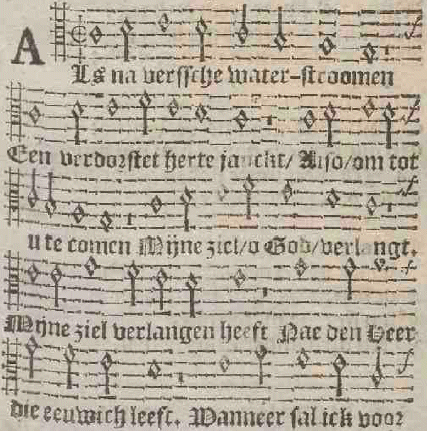 ALs na verssche water-stroomen
Een verdorstet herte janckt/ Also/om tot
u te comen Mijne ziel/o God/verlangt.
Mijne ziel verlangen heeft Nae den Heer
die eeuwich leeft. Wanneer sal ick voor